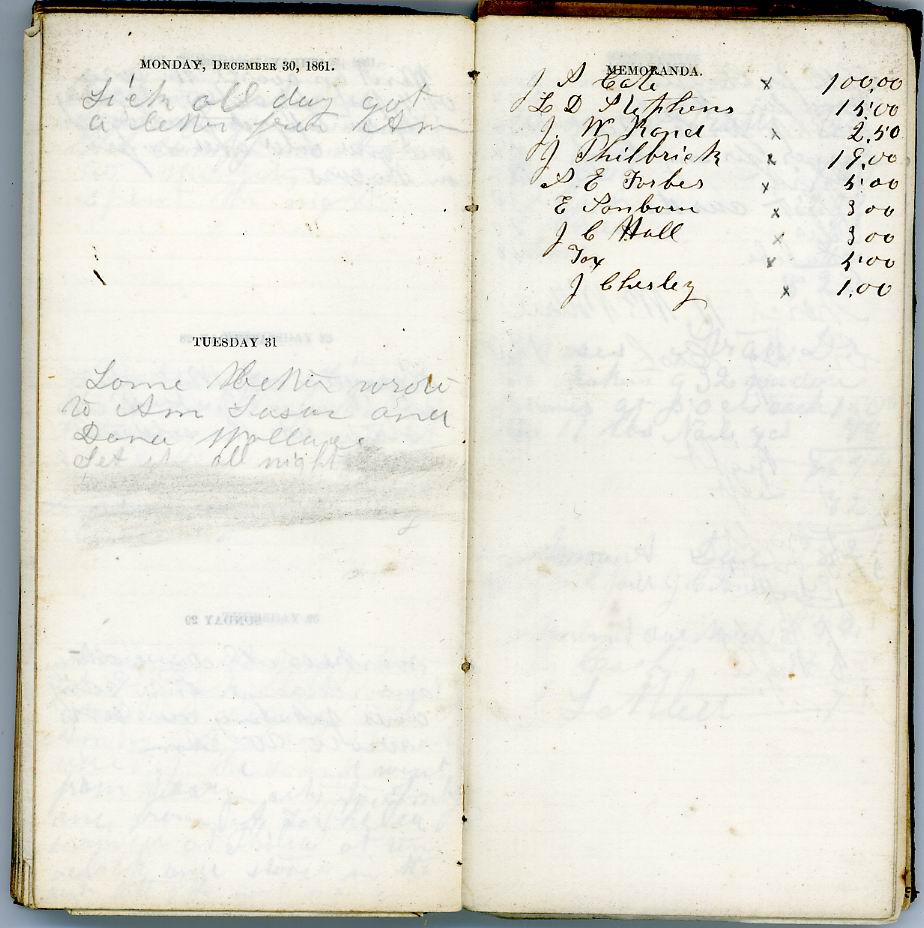 MONDAY, DECEMBER 30, 1861.
Sick all day got
a letter from Am
TUESDAY 31
Some better wrote
to Am Susan and
Dana Wallace
Set up all night
MEMORANDA.
J S Cate x 100,00
L D Stephens 15,00
J. W Rand x 2,50
J Philbrick x 19,00
S E Forbes x 5,00
E Sanborn x 3 00
J C Hall x 3 00
Fox x 5,00
J Chesley x 1,00